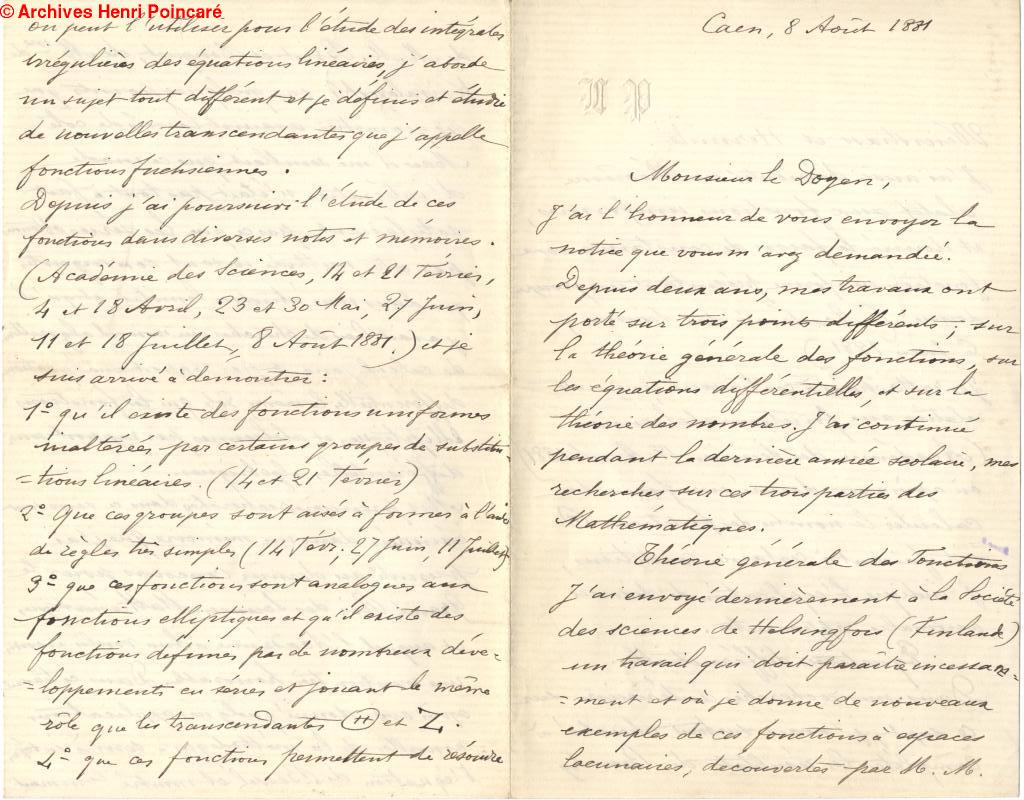 © Archives Henri Poincaré
on peut l'utiliser pour l'étude des intégrales
irrégulières des équations linéaires, j'aborde
un sujet tout différent et je définis et étudie
de nouvelles transcendantes que j'appelle
fonctions fuchsiennes.
Depuis j'ai poursuivi l'étude de ces
fonctions dans diverses notes et mémoires.
(Académie des Sciences, 14 et 21 Février,
4 et 18 Avril, 23 et 30 Mai, 27 Juin,
11 et 18 Juillet, 8 Août 1881.) et je
suis arrivé à démontrer:
1º qu'il existe des fonctions uniformes
inaltérées par certains groupes de substitu-
-tions linéaires. (14 et 21 Février)
2º Que ces groupes sont aisés à former à l'aide
de règles très simples (14 Févr. 27 Juin, 11 Juillet)
3º que ces fonctions sont analogues aux
fonctions elliptiques et qu'il existe des
fonctions définies par de nombreux déve-
-loppements en séries et jouant le même
rôle que les transcendantes Θ et Z.
4º que ces fonctions permettent de résoudre
Caen, 8 Août 1881
Monsieur le Doyen,
J'ai l'honneur de vous envoyer la
notice que vous m'avez demandée.
Depuis deux ans, mes travaux ont
porté sur trois points différents; sur
la théorie générale des fonctions, sur
les équations différentielles, et sur la
théorie des nombres. J'ai continué
pendant la dernière année scolaire, mes
recherches sur ces trois parties des
Mathématiques.
Théorie générale des Fonctions
J'ai envoyé dernièrement à la Société
des sciences de Helsingfors (Finlande)
un travail qui doit paraître incessam-
-ment et où je donne de nouveaux
exemples de ces fonctions à espaces
lacunaires, découvertes par M. M.